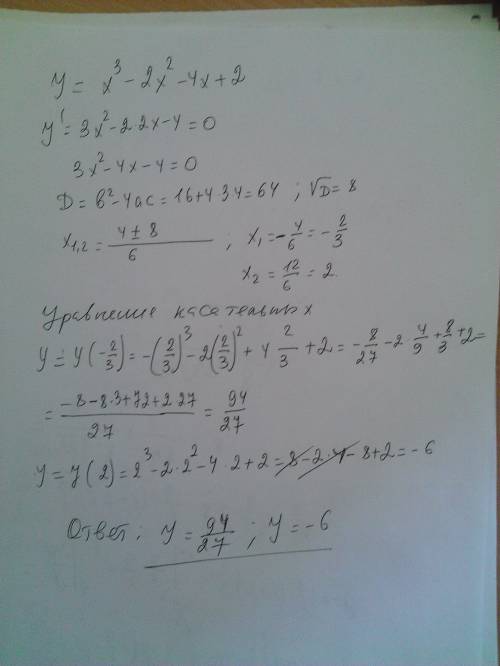 y = x³ - 2x² - 4x + 2
y' = 3x² - 2·2x - 4 = 0
3x² - 4x - 4 = 0
D = b² - 4ac = 16 + 4·3·4 = 64 ; √D = 8
x₁,₂ = (4 ± 8)/6 ; x₁ = -4/6 = -2/3
x₂ = 12/6 = 2.
Уравнение касательных
y = y(-2/3) = -(2/3)³ - 2(2/3)² + 4 2/3 + 2 = -8/27 - 2·4/9 + 8/3 + 2 =
= (-8 - 8·3 + 72 + 2·27)/27 = 94/27
y = y(2) = 2³ - 2·2² - 4·2 + 2 = 8 - 2·4 - 8 + 2 = -6
Ответ: y = 94/27 ; y = -6